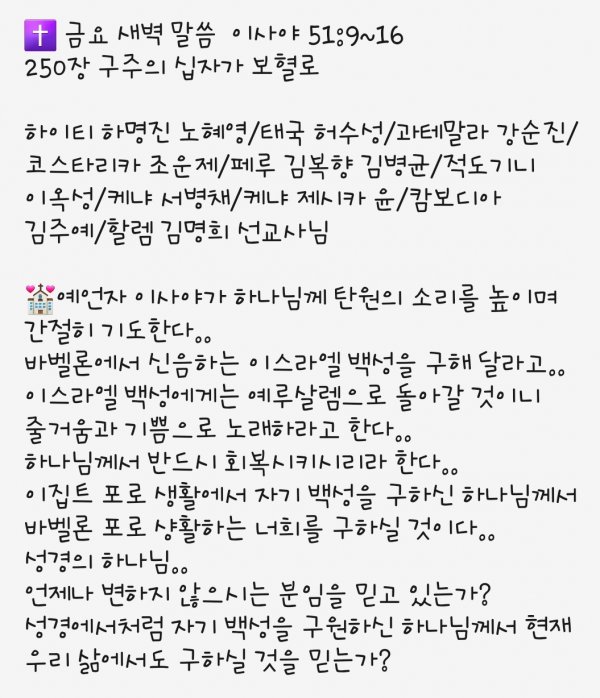 ✝️ 금요 새벽 말씀  이사야 51:9~16
250장 구주의 십자가 보혈로
하이티 하명진 노혜영/태국 허수성/과테말라 강순진/
코스타리카 조운제/페루 김복향 김병균/적도기니
이옥성/케냐 서병채/케냐 제시카 윤/캄보디아
김주예/할렘 김명희 선교사님
💒예언자 이사야가 하나님께 탄원의 소리를 높이며
간절히 기도한다。。
바벨론에서 신음하는 이스라엘 백성을 구해 달라고。。
이스라엘 백성에게는 예루살렘으로 돌아갈 것이니
줄거움과 기쁨으로 노래하라고 한다。。
하나님께서 반드시 회복시키시리라 한다。。
이집트 포로 생활에서 자기 백성을 구하신 하나님께서
바벨론 포로 샹활하는 너희를 구하실 것이다。。
성경의 하나님。。
언제나 변하지 않으시는 분임을 믿고 있는가?
성경에서처럼 자기 백성을 구원하신 하나님께서 현재
우리 삶에서도 구하실 것을 믿는가?